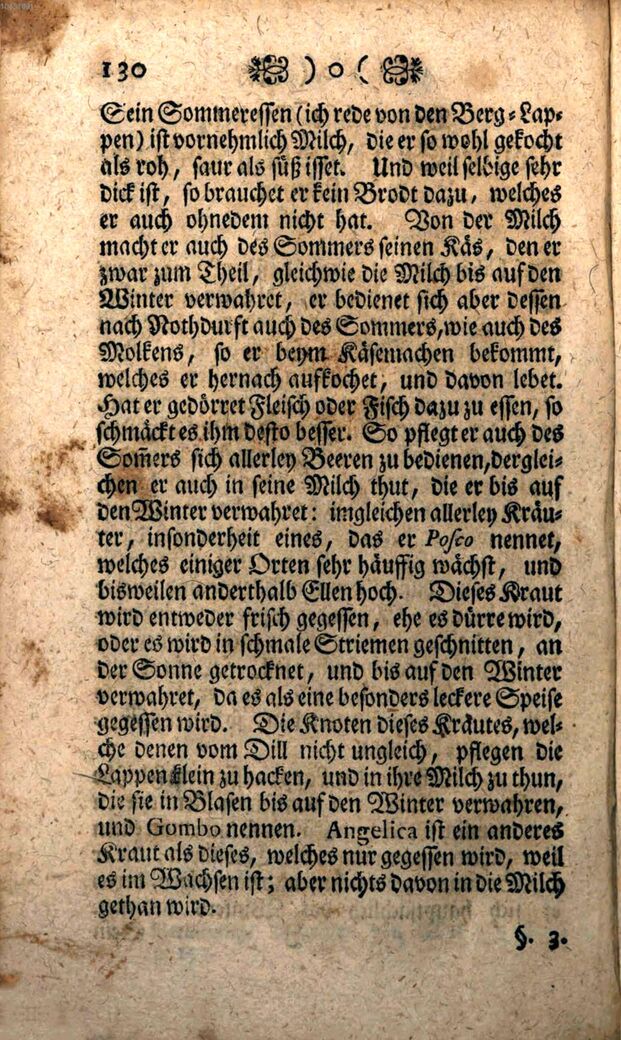 130 ) o (
Sein Sommeressen (ich rede von den Berg-Lap-
pen) ist vornehmlich Milch, die er so wohl gekocht
als roh, saur als süß isset. Und weil selbige sehr
dick ist, so brauchet er kein Brodt dazu, welches
er auch ohnedem nicht hat. Von der Milch
macht er auch des Sommers seinen Käs, den er
zwar zum Theil, gleichwie die Milch bis auf den
Winter verwahret, er bedienet sich aber dessen
nach Nothdurft auch des Sommers, wie auch des
Molkens, so er beym Käsemachen bekommt,
welches er hernach aufkochet, und davon lebet.
Hat er gedörret Fleisch oder Fisch dazu zu essen, so
schmäckt es ihm desto besser. So pflegt er auch des
Som̄ers sich allerley Beeren zu bedienen, derglei-
chen er auch in seine Milch thut, die er bis auf
den Winter verwahret: imgleichen allerley Kräu-
ter, insonderheit eines, das er Posco nennet,
welches einiger Orten sehr häuffig wächst, und
bisweilen anderthalb Ellen hoch. Dieses Kraut
wird entweder frisch gegessen, ehe es dürre wird,
oder es wird in schmale Striemen geschnitten, an
der Sonne getrocknet, und bis auf den Winter
verwahret, da es als eine besonders leckere Speise
gegessen wird. Die Knoten dieses Kräutes, wel-
che denen vom Dill nicht ungleich, pflegen die
Lappen klein zu hacken, und in ihre Milch zu thun,
die sie in Blasen bis auf den Winter verwahren,
und Gombo nennen. Angelica ist ein anderes
Kraut als dieses, welches nur gegessen wird, weil
es im Wachsen ist; aber nichts davon in die Milch
gethan wird.
§. 3.